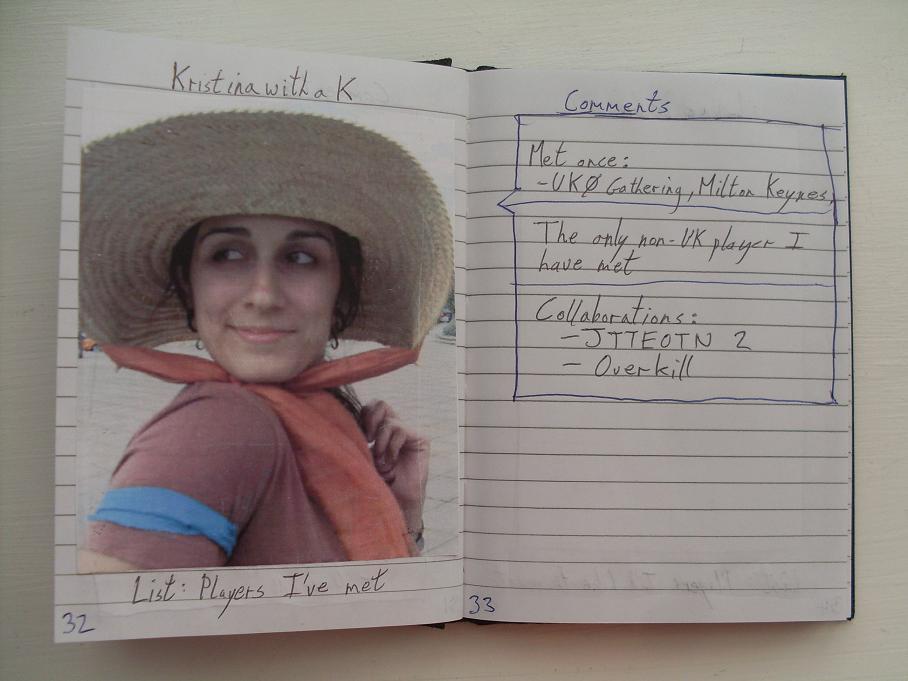 Kristina with a K
List: Players I've met
32
Comments
Met once:
-UKØ Gathering, Milton Keynes,
The only non-UK player I
have met
Collaborations:
- JTTEOTN 2
- Overkill
33